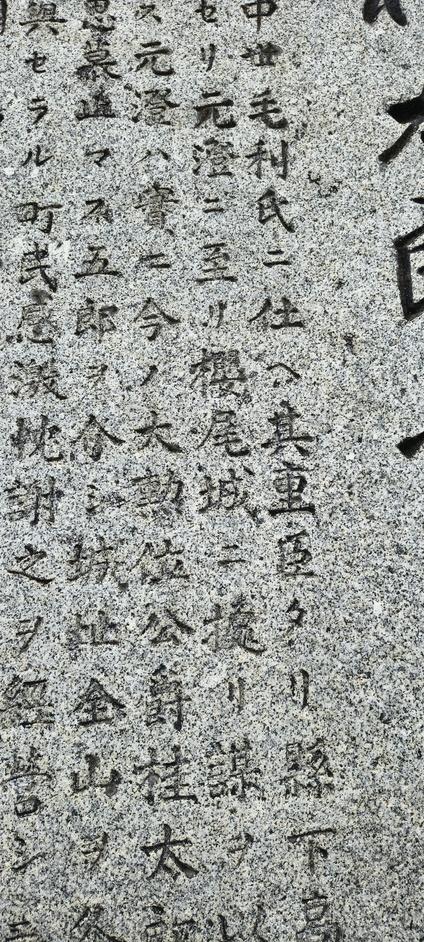 中世毛利氏ニ仕ヘ其重臣タリ縣下高
セリ元澄ニ至リ櫻尾城ニ據リ謀ヲ以
ス元澄ハ實ニ今ノ大勲位公爵桂太郎
思慕止マス五郎ヲ介シ城址全山ヲ
與セラル町民感激忱謝之ヲ經營シ